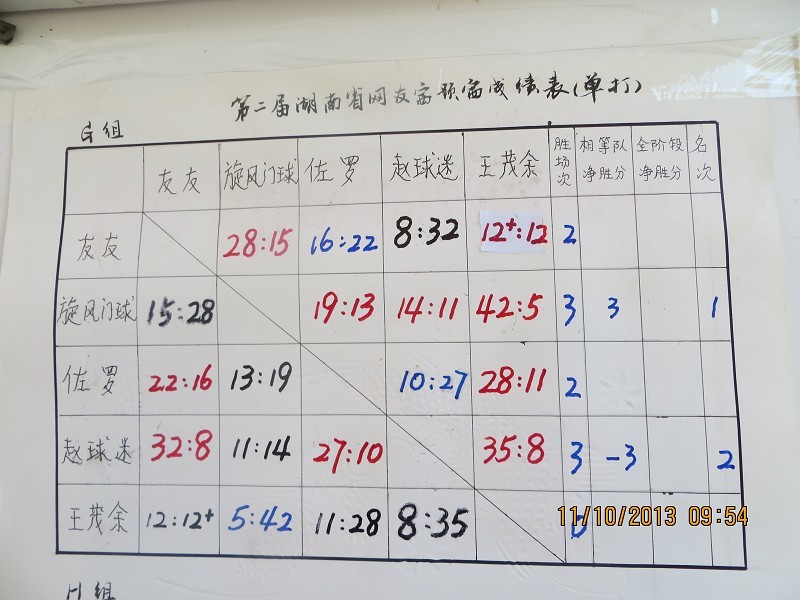 第二届湖南省网友富颐窝成绩表(单打)
G组
友友 旋风门球 佐罗 赵球迷 王茂余 胜场次 相等队净胜分 全阶段净胜分 名次
友友 28:15 16:22 8:32 12+:12 2
旋风门球 15:28 19:13 14:11 42:5 3 3 1
佐罗 22:16 13:19 10:27 28:11 2
赵球迷 32:8 11:14 27:10 35:8 3 -3 2
王茂余 12:12+ 5:42 11:28 8:35 0
11/10/2013 09:54
H组